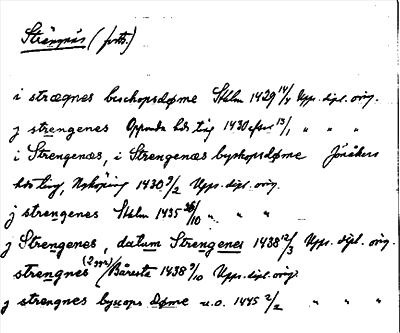 Strängnäs (forts.)
i strægnes biscopsdøme Sthlm 1429 14/4 Upps. dipl. orig.
j strengenes Oppunda hds ting 1430 efter 13/1 " " "
i Strengenæs, i Strengenæs byskopsdøme Jönåkers
hds ting, Nyköping 1430 9/2 Upps. dipl. orig.
j strengenes Sthlm 1435 26/10 " " "
j Strengenes, datum Strengenes 1438 12/3 Upps. dipl. orig.
strengnes (2 ggr) / Bärsta 1438 9/10 Upps. dipl. orig.
j strengnes byscops døme u.o. 1445 2/2 " " "